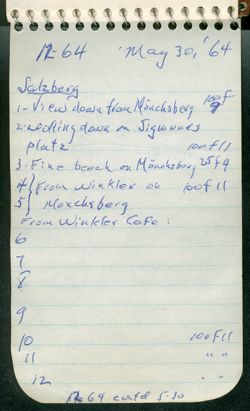 12-64 May 30, '64
Salzberg
1 - View down from Mönchsberg 100f 9
2 - Looking down on Sigmunds
platz 100f11
3 - Fine beech on Mönchsberg 25f9
4 } From Winkler on 100f11
5 } Monchsberg
From Winkler Cafe:
6
7
8
9
10 100f11
11 " "
12 " "
12-64 contd 5-30